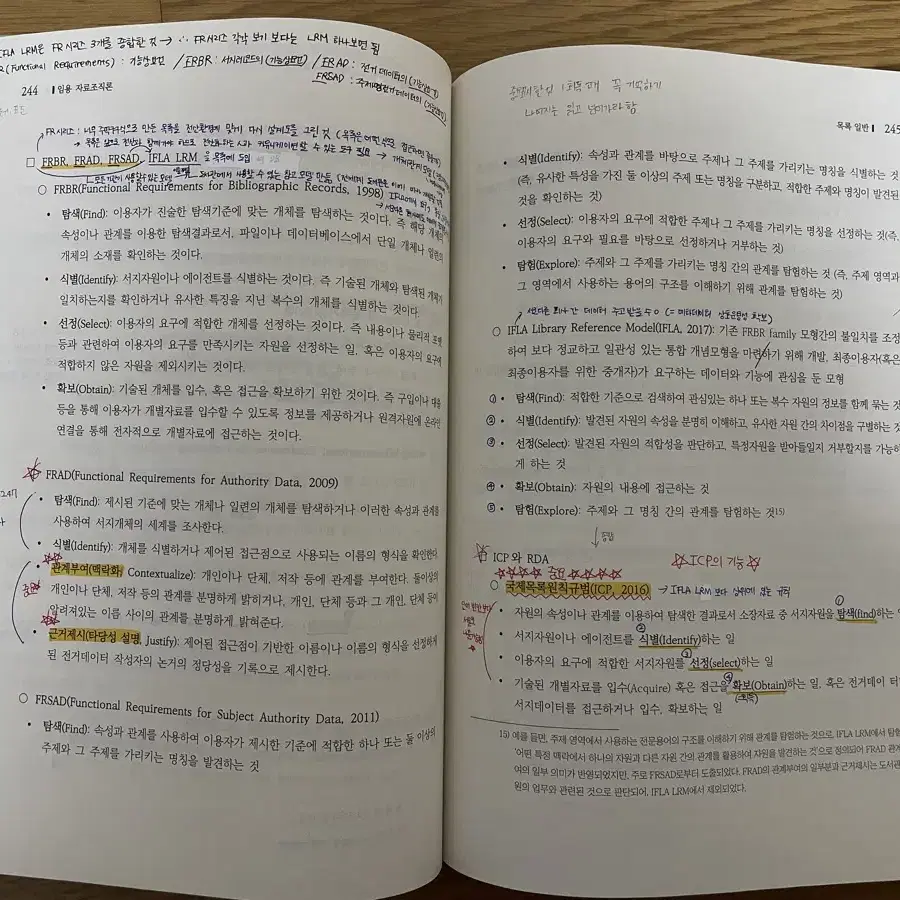 IFLA LRM은 FR시리즈 3개를 종합한 것 → ∴ FR시리즈 각각 보기 보다는 LRM 하나보면 됨
(Functional Requirements) : 기능상요건 / FRBR : 서지레코드의 (기능상요건) / FRAD : 전거 데이터의 (기능상요건)
FRSAD : 주제명전거데이터의 (기능상요건)
244 | 임용 자료조직론
□ FRBR, FRAD, FRSAD, IFLA LRM
○ FRBR(Functional Requirements for Bibliographic Records, 1998)
• 탐색(Find): 이용자가 진술한 탐색기준에 맞는 개체를 탐색하는 것이다. 즉 해당 개체의
속성이나 관계를 이용한 탐색결과로서, 파일이나 데이터베이스에서 단일 개체나 일련의
개체의 소재를 확인하는 것이다.
• 식별(Identify): 서지자원이나 에이전트를 식별하는 것이다. 즉 기술된 개체와 탐색된 개체가
일치하는지를 확인하거나 유사한 특징을 지닌 복수의 개체를 식별하는 것이다.
• 선정(Select): 이용자의 요구에 적합한 개체를 선정하는 것이다. 즉 내용이나 물리적 포맷
등과 관련하여 이용자의 요구를 만족시키는 자원을 선정하는 일, 혹은 이용자의 요구에
적합하지 않은 자원을 제외시키는 것이다.
• 확보(Obtain): 기술된 개체를 입수, 혹은 접근을 확보하기 위한 것이다. 즉 구입이나 대출
등을 통해 이용자가 개별자료를 입수할 수 있도록 정보를 제공하거나 원격자원에 온라인
연결을 통해 전자적으로 개별자료에 접근하는 것이다.
FRAD(Functional Requirements for Authority Data, 2009)
• 탐색(Find): 제시된 기준에 맞는 개체나 일련의 개체를 탐색하거나 이러한 속성과 관계를
사용하여 서지개체의 세계를 조사한다.
• 식별(Identify): 개체를 식별하거나 제어된 접근점으로 사용되는 이름의 형식을 확인한다.
• 관계부여(맥락화, Contextualize): 개인이나 단체, 저작 등에 관계를 부여한다. 둘이상의
개인이나 단체, 저작 등의 관계를 분명하게 밝히거나, 개인, 단체 등과 그 개인, 단체 등이
알려져있는 이름 사이의 관계를 분명하게 밝혀준다.
• 근거제시(타당성 설명, Justify): 제어된 접근점이 기반한 이름이나 이름의 형식을 선정하게
된 전거데이터 작성자의 논거의 정당성을 기록으로 제시한다.
○ FRSAD(Functional Requirements for Subject Authority Data, 2011)
• 탐색(Find): 속성과 관계를 사용하여 이용자가 제시한 기준에 적합한 하나 또는 둘 이상의
주제와 그 주제를 가리키는 명칭을 발견하는 것
목록 일반 | 245
• 식별(Identify): 속성과 관계를 바탕으로 주제나 그 주제를 가리키는 명칭을 식별하는 것
(즉, 유사한 특성을 가진 둘 이상의 주제 또는 명칭을 구분하고, 적합한 주제와 명칭이 발견된
것을 확인하는 것)
• 선정(Select): 이용자의 요구에 적합한 주제나 그 주제를 가리키는 명칭을 선정하는 것(즉,
이용자의 요구와 필요를 바탕으로 선정하거나 거부하는 것)
• 탐험(Explore): 주제와 그 주제를 가리키는 명칭 간의 관계를 탐험하는 것 (즉, 주제 영역과
그 영역에서 사용하는 용어의 구조를 이해하기 위해 관계를 탐험하는 것)
○ IFLA Library Reference Model(IFLA, 2017): 기존 FRBR family 모형간의 불일치를 조정
하여 보다 정교하고 일관성 있는 통합 개념모형을 마련하기 위해 개발, 최종이용자(혹은
최종이용자를 위한 중개자)가 요구하는 데이터와 기능에 관심을 둔 모형
① 탐색(Find): 적합한 기준으로 검색하여 관심있는 하나 또는 복수 자원의 정보를 함께 묶는 것
② 식별(Identify): 발견된 자원의 속성을 분명히 이해하고, 유사한 자원 간의 차이점을 구별하는 것
③ 선정(Select): 발견된 자원의 적합성을 판단하고, 특정자원을 받아들일지 거부할지를 가능하
게 하는 것
④ 확보(Obtain): 자원의 내용에 접근하는 것
⑤ 탐험(Explore): 주제와 그 명칭 간의 관계를 탐험하는 것15)
ICP와 RDA
☆ICP의 기능☆
○ 국제목록원칙규범(ICP, 2016) → IFLA LRM 보다 상위에 있는 규칙
• 자원의 속성이나 관계를 이용하여 탐색한 결과로서 소장자료 중 서지자원을 ① 탐색(find)하는
• 서지자원이나 에이전트를 ② 식별(Identify)하는 일
• 이용자의 요구에 적합한 서지자원을 ③ 선정(select)하는 일
• 기술된 개별자료를 입수(Acquire) 혹은 접근을 ④ 확보(Obtain)하는 일, 혹은 전거데이터
서지데이터를 접근하거나 입수, 확보하는 일
15) 예를 들면, 주제 영역에서 사용하는 전문용어의 구조를 이해하기 위해 관계를 탐험하는 것으로, IFLA LRM에서 탐험
'어떤 특정 맥락에서 하나의 자원과 다른 자원 간의 관계를 활용하여 자원을 발견하는 것'으로 정의되어 FRAD 관계
여의 일부 의미가 반영되었지만, 주로 FRSAD로부터 도출되었다. FRAD의 관계부여의 일부분과 근거제시는 도서관
원의 업무와 관련된 것으로 판단되어, IFLA LRM에서 제외되었다.